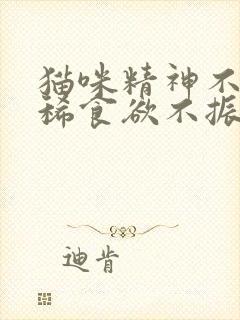 猫咪精神不
稀食欲不振
迪肯